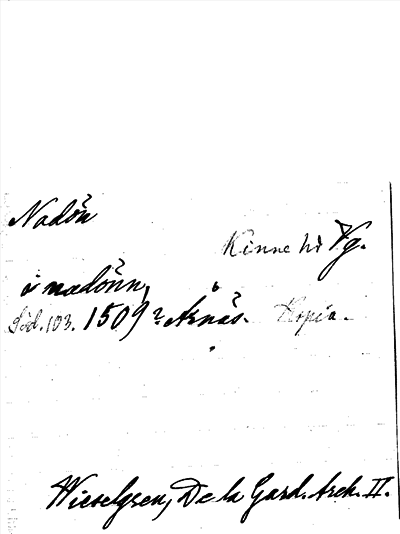 Nadön
Kinne hd Vg.
i madönn,
Söd. 103. 1509? Årnäs. Kopia.
Wieselgren, De la Gard. Arch. II.